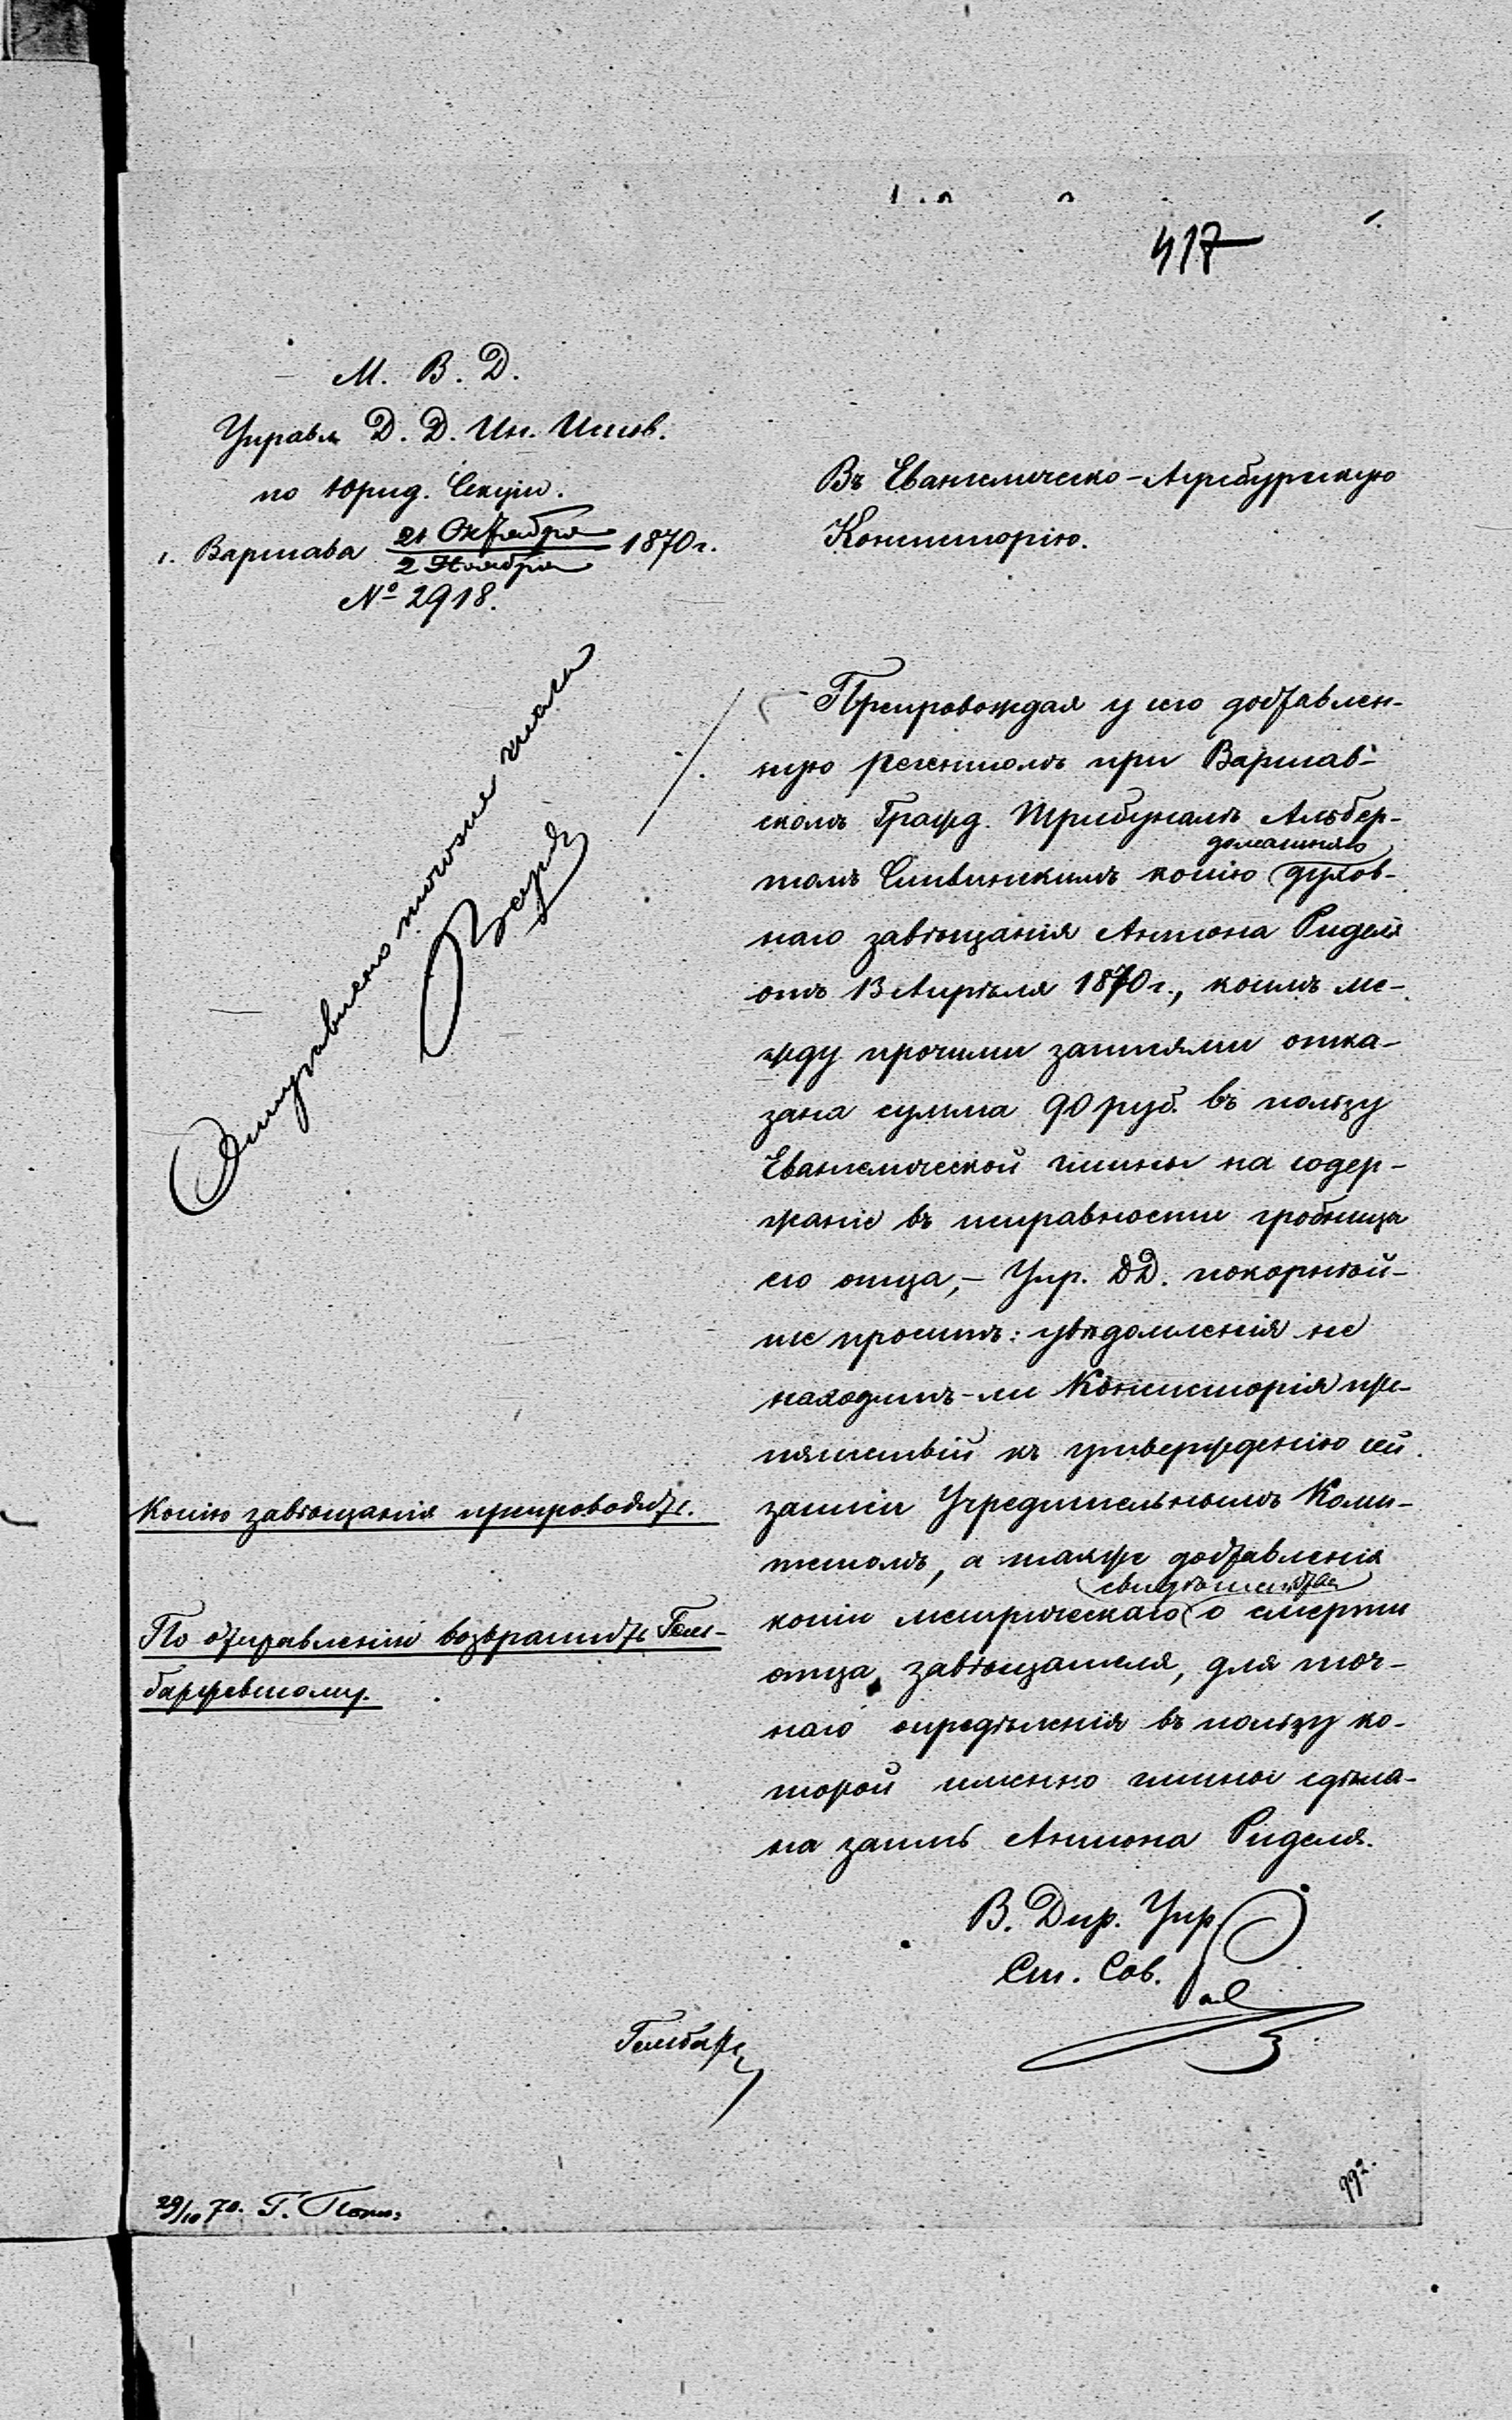 417
М. В. Д.
Управл. Д. Д. Ин. Испов.
по Юрид. Секціи.
г. Варшава 21 Октября / 2 Ноября 1870 г.
№ 2918.
Въ Евангелическо-Аугсбургскую
Консисторію.
Препровождая у сего доставлен-
ную регентомъ при Варшав-
скомъ Гражд. Трибуналѣ Альбер-
домашняго
томъ Сливинскимъ копію духов-
наго завѣщанія Антона Риделя
отъ 13 Апрѣля 1870 г., коимъ ме-
жду прочими записями отка-
зана сумма 90 руб. въ пользу
Евангелической гмины на содер-
жаніе въ исправности гробницы
его отца,- Упр. ДД. покорнѣй-
ше проситъ: увѣдомленія не
находитъ-ли Консисторія пре-
пятствій къ утвержденію сей
записи Учредительнымъ Коми-
тетомъ, а также доставленія
свидѣтельства
копіи метрическаго о смерти
отца завѣщателя, для точ-
наго опредѣленія въ пользу ко-
торой именно гмины сдѣла-
на запись Антона Риделя.
В. Дир. Упр.
Ст. Сов.
Отправлено того же числа
Копію завѣщанія препроводить.
По отправленіи возвратить Гем-
баржевскому.
Гембарж
29/10 70. Г.
992.